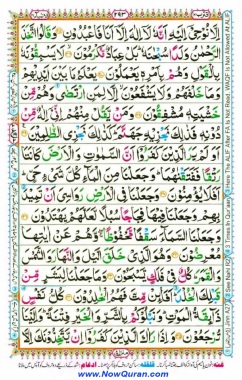 ٢٩٣
اِلَّا نُوْحِیْۤ اِلَیْهِ اَنَّهٗ لَاۤ اِلٰهَ اِلَّاۤ اَنَا فَاعْبُدُوْنِ وَقَالُوا اتَّخَذَ
الرَّحْمٰنُ وَلَدًا سُبْحٰنَهٗ بَلْ عِبَادٌ مُّكْرَمُوْنَ لَا یَسْبِقُوْنَهٗ
بِالْقَوْلِ وَهُمْ بِاَمْرِهٖ یَعْمَلُوْنَ یَعْلَمُ مَا بَیْنَ اَیْدِیْهِمْ
وَمَا خَلْفَهُمْ وَلَا یَشْفَعُوْنَ اِلَّا لِمَنِ ارْتَضٰی وَهُمْ مِّنْ
خَشْیَتِهٖ مُشْفِقُوْنَ وَمَنْ یَّقُلْ مِنْهُمْ اِنِّیْۤ اِلٰهٌ مِّنْ
دُوْنِهٖ فَذٰلِكَ نَجْزِیْهِ جَهَنَّمَ كَذٰلِكَ نَجْزِی الظّٰلِمِیْنَ
اَوَلَمْ یَرَ الَّذِیْنَ كَفَرُوْۤا اَنَّ السَّمٰوٰتِ وَالْاَرْضَ كَانَتَا
رَتْقًا فَفَتَقْنٰهُمَا وَجَعَلْنَا مِنَ الْمَآءِ كُلَّ شَیْءٍ حَیٍّ
اَفَلَا یُؤْمِنُوْنَ وَجَعَلْنَا فِی الْاَرْضِ رَوَاسِیَ اَنْ تَمِیْدَ
بِهِمْ وَجَعَلْنَا فِیْهَا فِجَاجًا سُبُلًا لَّعَلَّهُمْ یَهْتَدُوْنَ
وَجَعَلْنَا السَّمَآءَ سَقْفًا مَّحْفُوْظًا وَّهُمْ عَنْ اٰیٰتِهَا
مُعْرِضُوْنَ وَهُوَ الَّذِیْ خَلَقَ الَّیْلَ وَالنَّهَارَ وَالشَّمْسَ
وَالْقَمَرَ كُلٌّ فِیْ فَلَكٍ یَّسْبَحُوْنَ وَمَا جَعَلْنَا لِبَشَرٍ مِّنْ
قَبْلِكَ الْخُلْدَ اَفَا۟ئِنْ مِّتَّ فَهُمُ الْخٰلِدُوْنَ كُلُّ نَفْسٍ
ذَآئِقَةُ الْمَوْتِ وَنَبْلُوْكُمْ بِالشَّرِّ وَالْخَیْرِ فِتْنَةً وَاِلَیْنَا
تُرْجَعُوْنَ وَاِذَا رَاٰكَ الَّذِیْنَ كَفَرُوْۤا اِنْ یَّتَّخِذُوْنَكَ
www.NowQuran.com